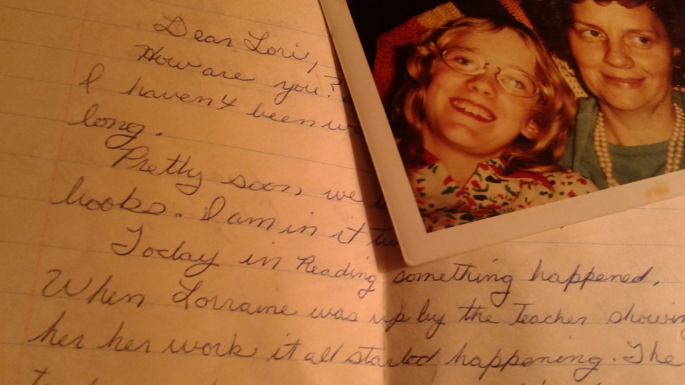 Dear Lori,
How are you?
I haven't been
long.
Pretty soon we
books. I am in it
Today in Reading something happened.
When Lorraine was up by the Teacher showing
her her work it all started happening. The